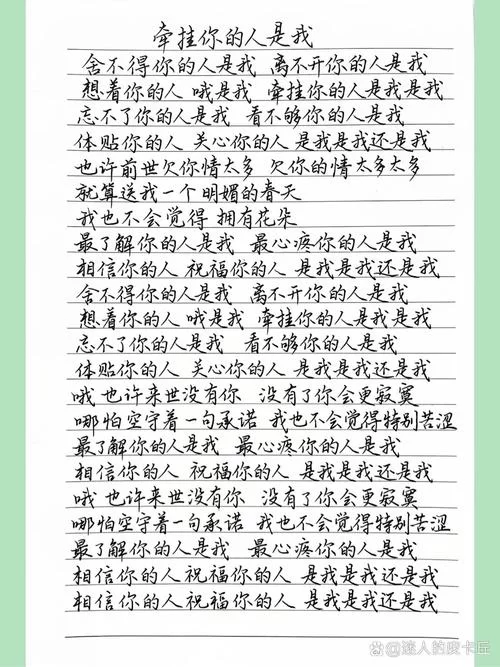 牵挂你的人是我
舍不得你的人是我 离不开你的人是我
想着你的人 哦是我 牵挂你的人是我是我
忘不了你的人是我 看不够你的人是我
体贴你的人 关心你的人 是我是我还是我
也许前世欠你情太多 欠你的情太多太多
就算送我一个 明媚的春天
我也不会觉得 拥有花朵
最了解你的人是我 最心疼你的人是我
相信你的人 祝福你的人 是我是我还是我
舍不得你的人是我 离不开你的人是我
想着你的人 哦是我 牵挂你的人是我是我
忘不了你的人是我 看不够你的人是我
体贴你的人 关心你的人 是我是我还是我
哦 也许来世没有你 没有了你会更寂寞
哪怕空守着一句承诺 我也不会觉得特别苦涩
最了解你的人是我 最心疼你的人是我
相信你的人 祝福你的人 是我是我还是我
哦 也许来世没有你 没有了你会更寂寞
哪怕空守着一句承诺 我也不会觉得特别苦涩
最了解你的人是我 最心疼你的人是我
相信你的人祝福你的人 是我是我还是我
相信你的人祝福你的人 是我是我还是我
@迷人的皮卡丘